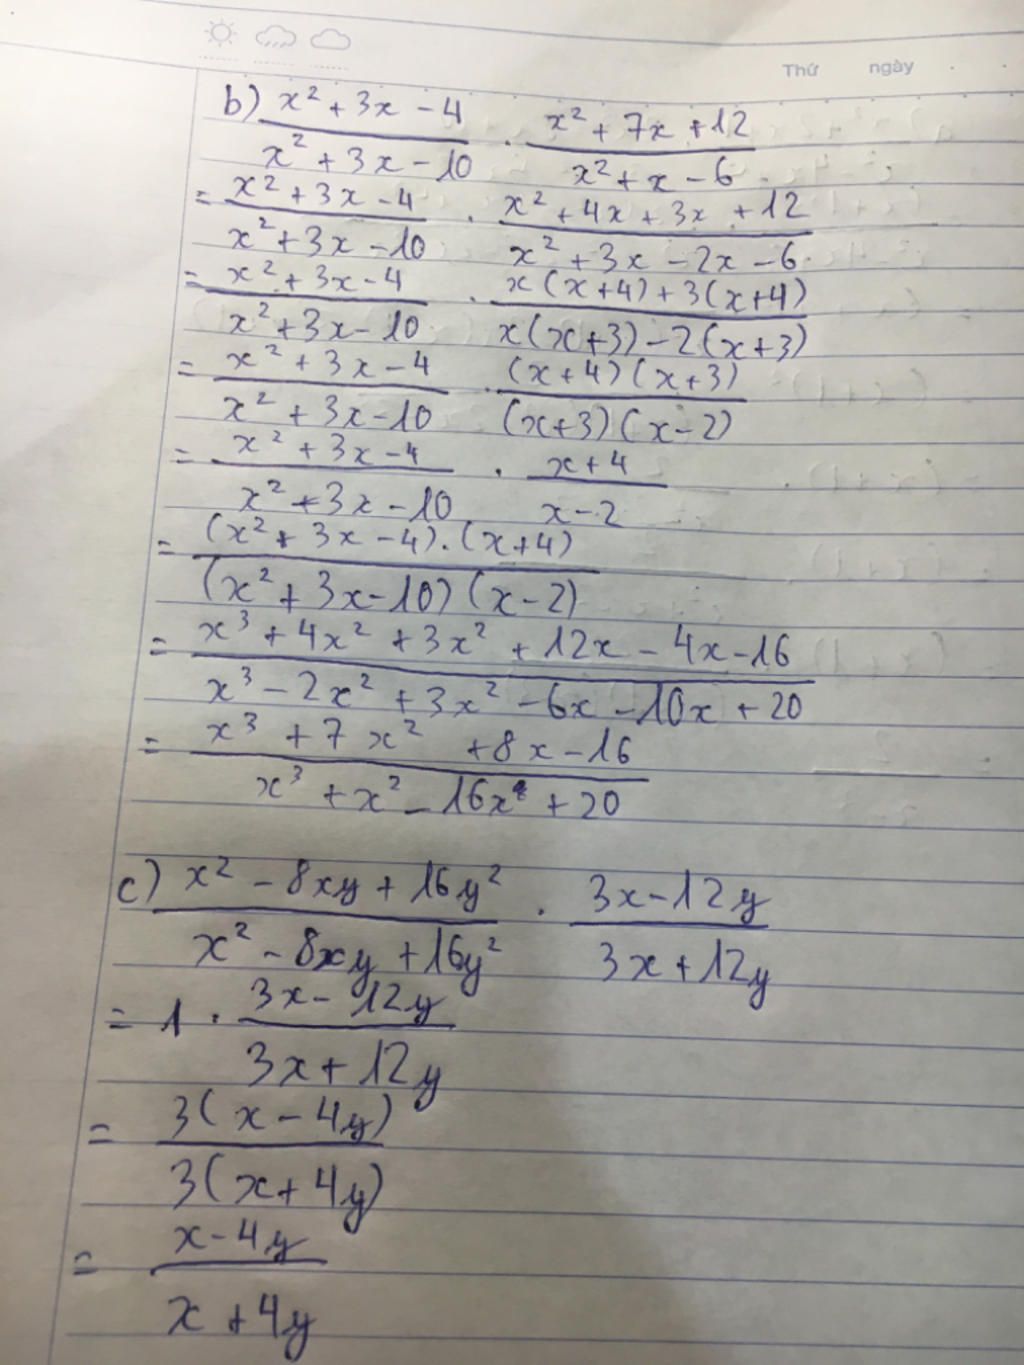 Thứ ngày
b) x² + 3x - 4 / x² + 3x - 10 . x² + 7x + 12 / x² + x - 6
= x² + 3x - 4 / x² + 3x - 10 . x² + 4x + 3x + 12 / x² + 3x - 2x - 6
= x² + 3x - 4 / x² + 3x - 10 . x(x+4) + 3(x+4) / x(x+3) - 2(x+3)
= x² + 3x - 4 / x² + 3x - 10 . (x+4)(x+3) / (x+3)(x-2)
= x² + 3x - 4 / x² + 3x - 10 . x+4 / x-2
= (x² + 3x - 4).(x+4) / (x² + 3x - 10)(x-2)
= x³ + 4x² + 3x² + 12x - 4x - 16 / x³ - 2x² + 3x² - 6x - 10x + 20
= x³ + 7x² + 8x - 16 / x³ + x² - 16x + 20
c) x² - 8xy + 16y² / x² - 8xy + 16y² . 3x - 12y / 3x + 12y
= 1 . 3x - 12y / 3x + 12y
= 3(x - 4y) / 3(x + 4y)
= x - 4y / x + 4y